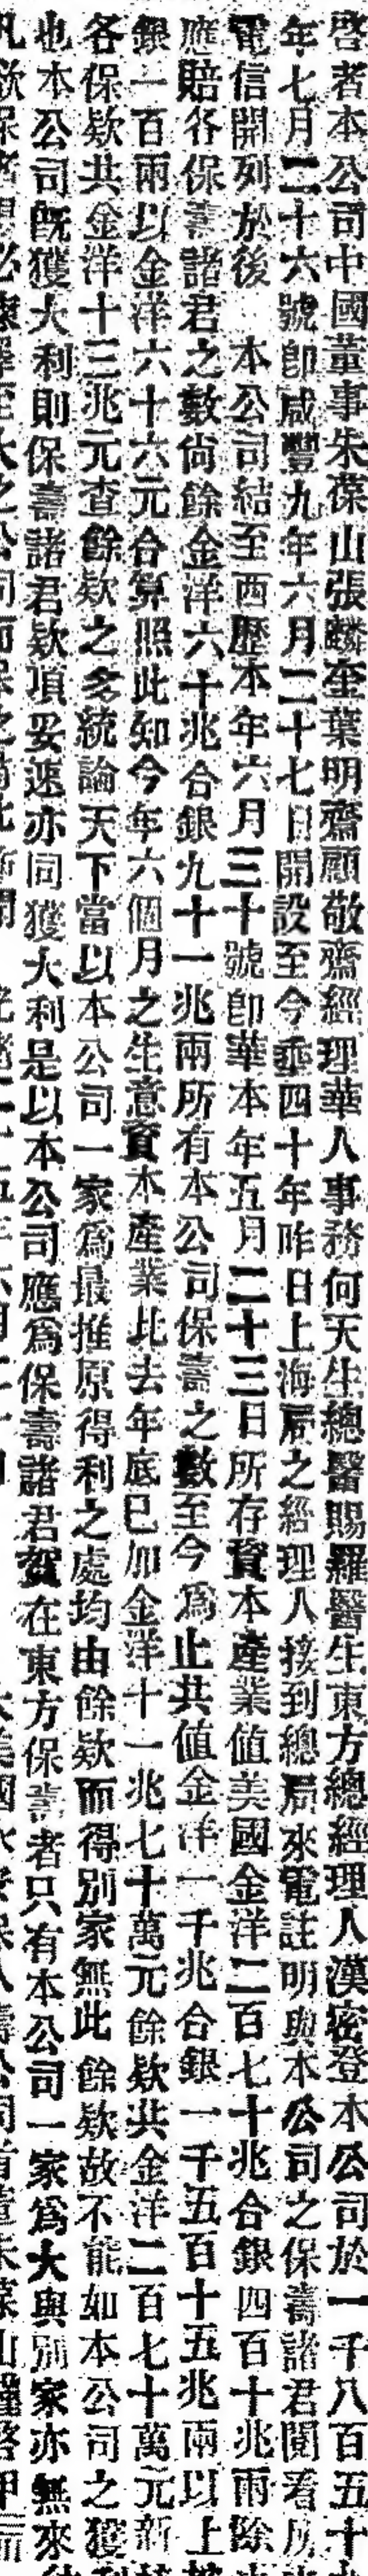 啓者本公司中國董事朱葆山張麟奎葉明齋顧敬齋經理華人事務何天生總醫賜羅醫生東方總經理人漢密登本公司於一千八百五十
年七月二十六號卽咸豐九年六月二十七日開設至今垂四十年昨日上海局之經理人接到總局來電註明與本公司之保壽諸君閱看所
電信開列於後　本公司結至西歷本年六月三十號卽華本年五月二十三日所存資本產業値美國金洋二百七十兆合銀四百十兆兩除
應賠各保壽諸君之數尙餘金洋六十兆合銀九十一兆兩所有本公司保壽之數至今爲止共値金洋一千兆合銀一千五百十五兆兩以上
銀一百兩以金洋六十六元合算照此如今年六個月之生意資本產業比去年底已加金洋十一兆七十萬元餘欵共金洋二百七十萬元新
各保欵共金洋十三兆元查餘欵之多統論天下當以本公司一家爲最推原得利之處均由餘欵而得別家無此餘欵故不能如本公司之獲
也本公司旣獲大利則保壽諸君欵項妥速亦同獲大利是以本公司應爲保壽諸君賀在東方保壽者只有本公司一家爲大與別家亦無來
凡欲保者